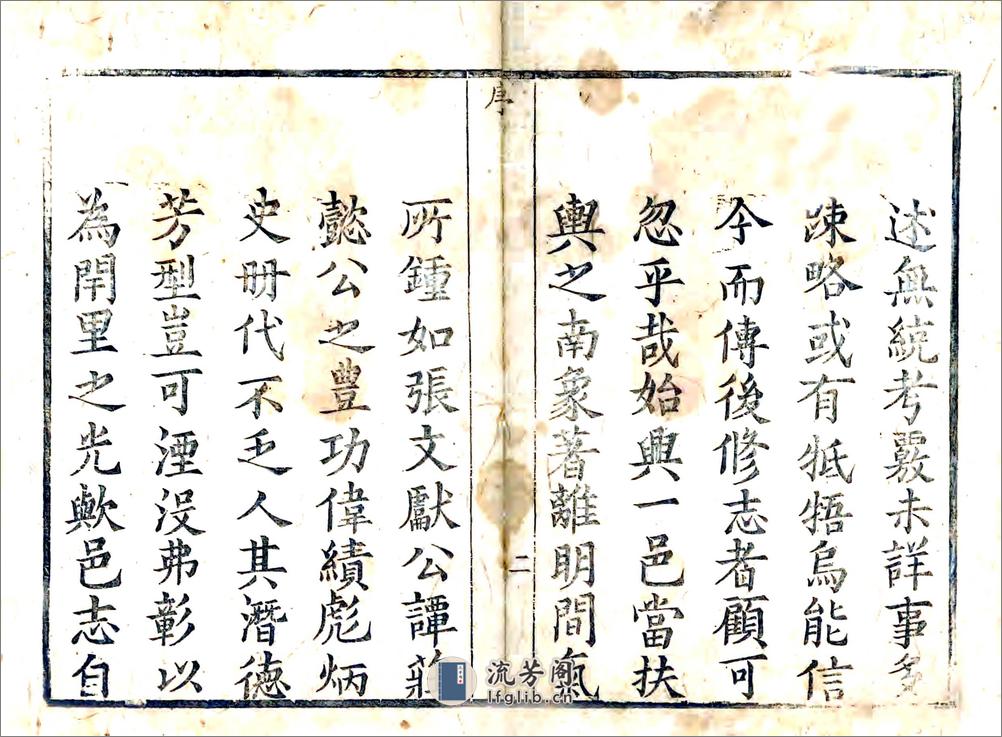 述無統考覈未詳事多
踈略或有牴牾烏能信
今而傳後修志者顧可
忽乎哉始興一邑當扶
輿之南象著離明間氣
序
二
所鍾如張文獻公譚莊
懿公之豊功偉績彪炳
史册代不乏人其潛德
芳型豈可湮没弗彰以
為閈里之光歟邑志自
流芳阁
lfglib.cn